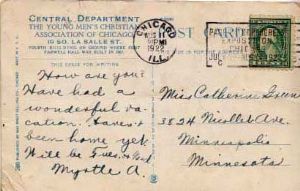 CENTRAL DEPARTMENT
THE YOUNG MEN'S CHRISTIAN
ASSOCIATION OF CHICAGO
19 SO. LA SALLE ST.
FOURTH BUILDING ON GROUND WHERE FIRST
FARWELL HALL WAS BUILT IN
POST CARD
CHICAGO
AUG 11
PM
1922
ILL.
THIS SPACE FOR WRITING
How are you?
Have had a
wonderful va-
cation. Haven't
been home yet.
Will be Tues.
Myrtle A.
Miss Catherine Green
3824 Nicollet Ave.
Minneapolis
Minnesota